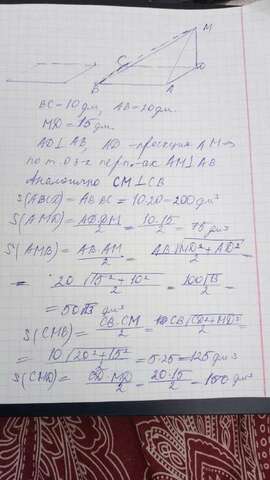 M
C
D
B
A
BC=10 дм, AB=20 дм.
MD=15 дм.
AD⊥AB, AD - проекция AM ⇒
по т. о 3-х перп-ах AM⊥AB
Аналогично CM⊥CB
S(ABCD)=AB·BC=10·20=200 дм²
S(AMD)=AD·DM/2=10·15/2=75 дм²
S(AMB)=AB·AM/2=AB√MD²+AD²/2=
=20√15²+10²/2=100√13/2=
=50√13 дм²
S(CMB)=CB·CM/2=CB√CD²+MD²/2
=10√20²+15²/2=5·25=125 дм²
S(CMD)=CD·MD/2=20·15/2=150 дм²